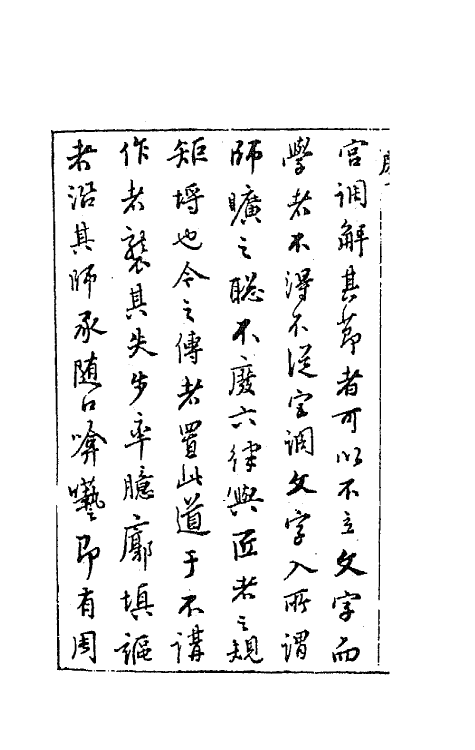 宮調解其節者可以不立文字而
學者不得不從宮調文字入所謂
師曠之聰不廢六律與匠者之規
矩埒也今之傳者置此道于不講
作者襲其失步率臆廓填謳
者沿其師承随口囈即有周